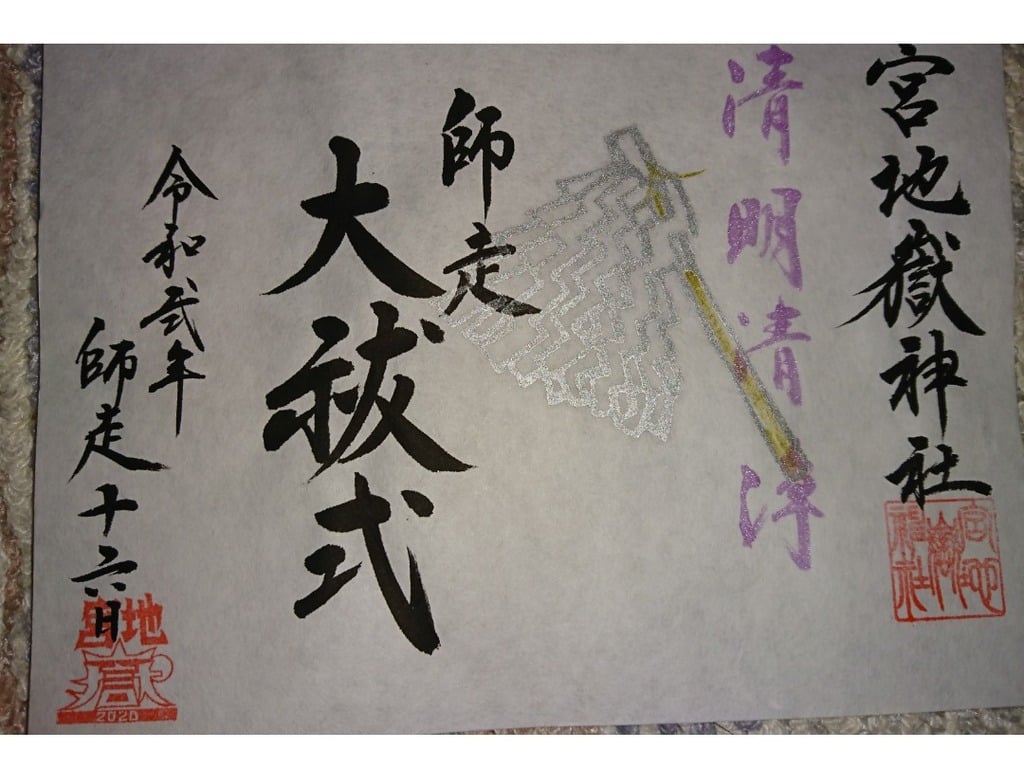 宮地嶽神社
清明清浄
師走
大祓式
令和弐年
師走十六日
宮地嶽神社
宮地
嶽
2020